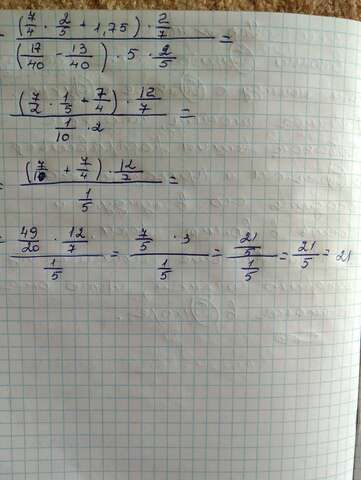 = (7/4 · 2/5 + 1,75) · 2/7 / (17/40 - 13/40) · 5 · 2/5 =
(7/2 · 1/5 + 7/4) · 12/7 / 1/10 · 2 =
= (7/10 + 7/4) · 12/7 / 1/5 =
= 49/20 · 12/7 / 1/5 = 7/5 · 3 / 1/5 = 21/5 / 1/5 = 21/5 = 21